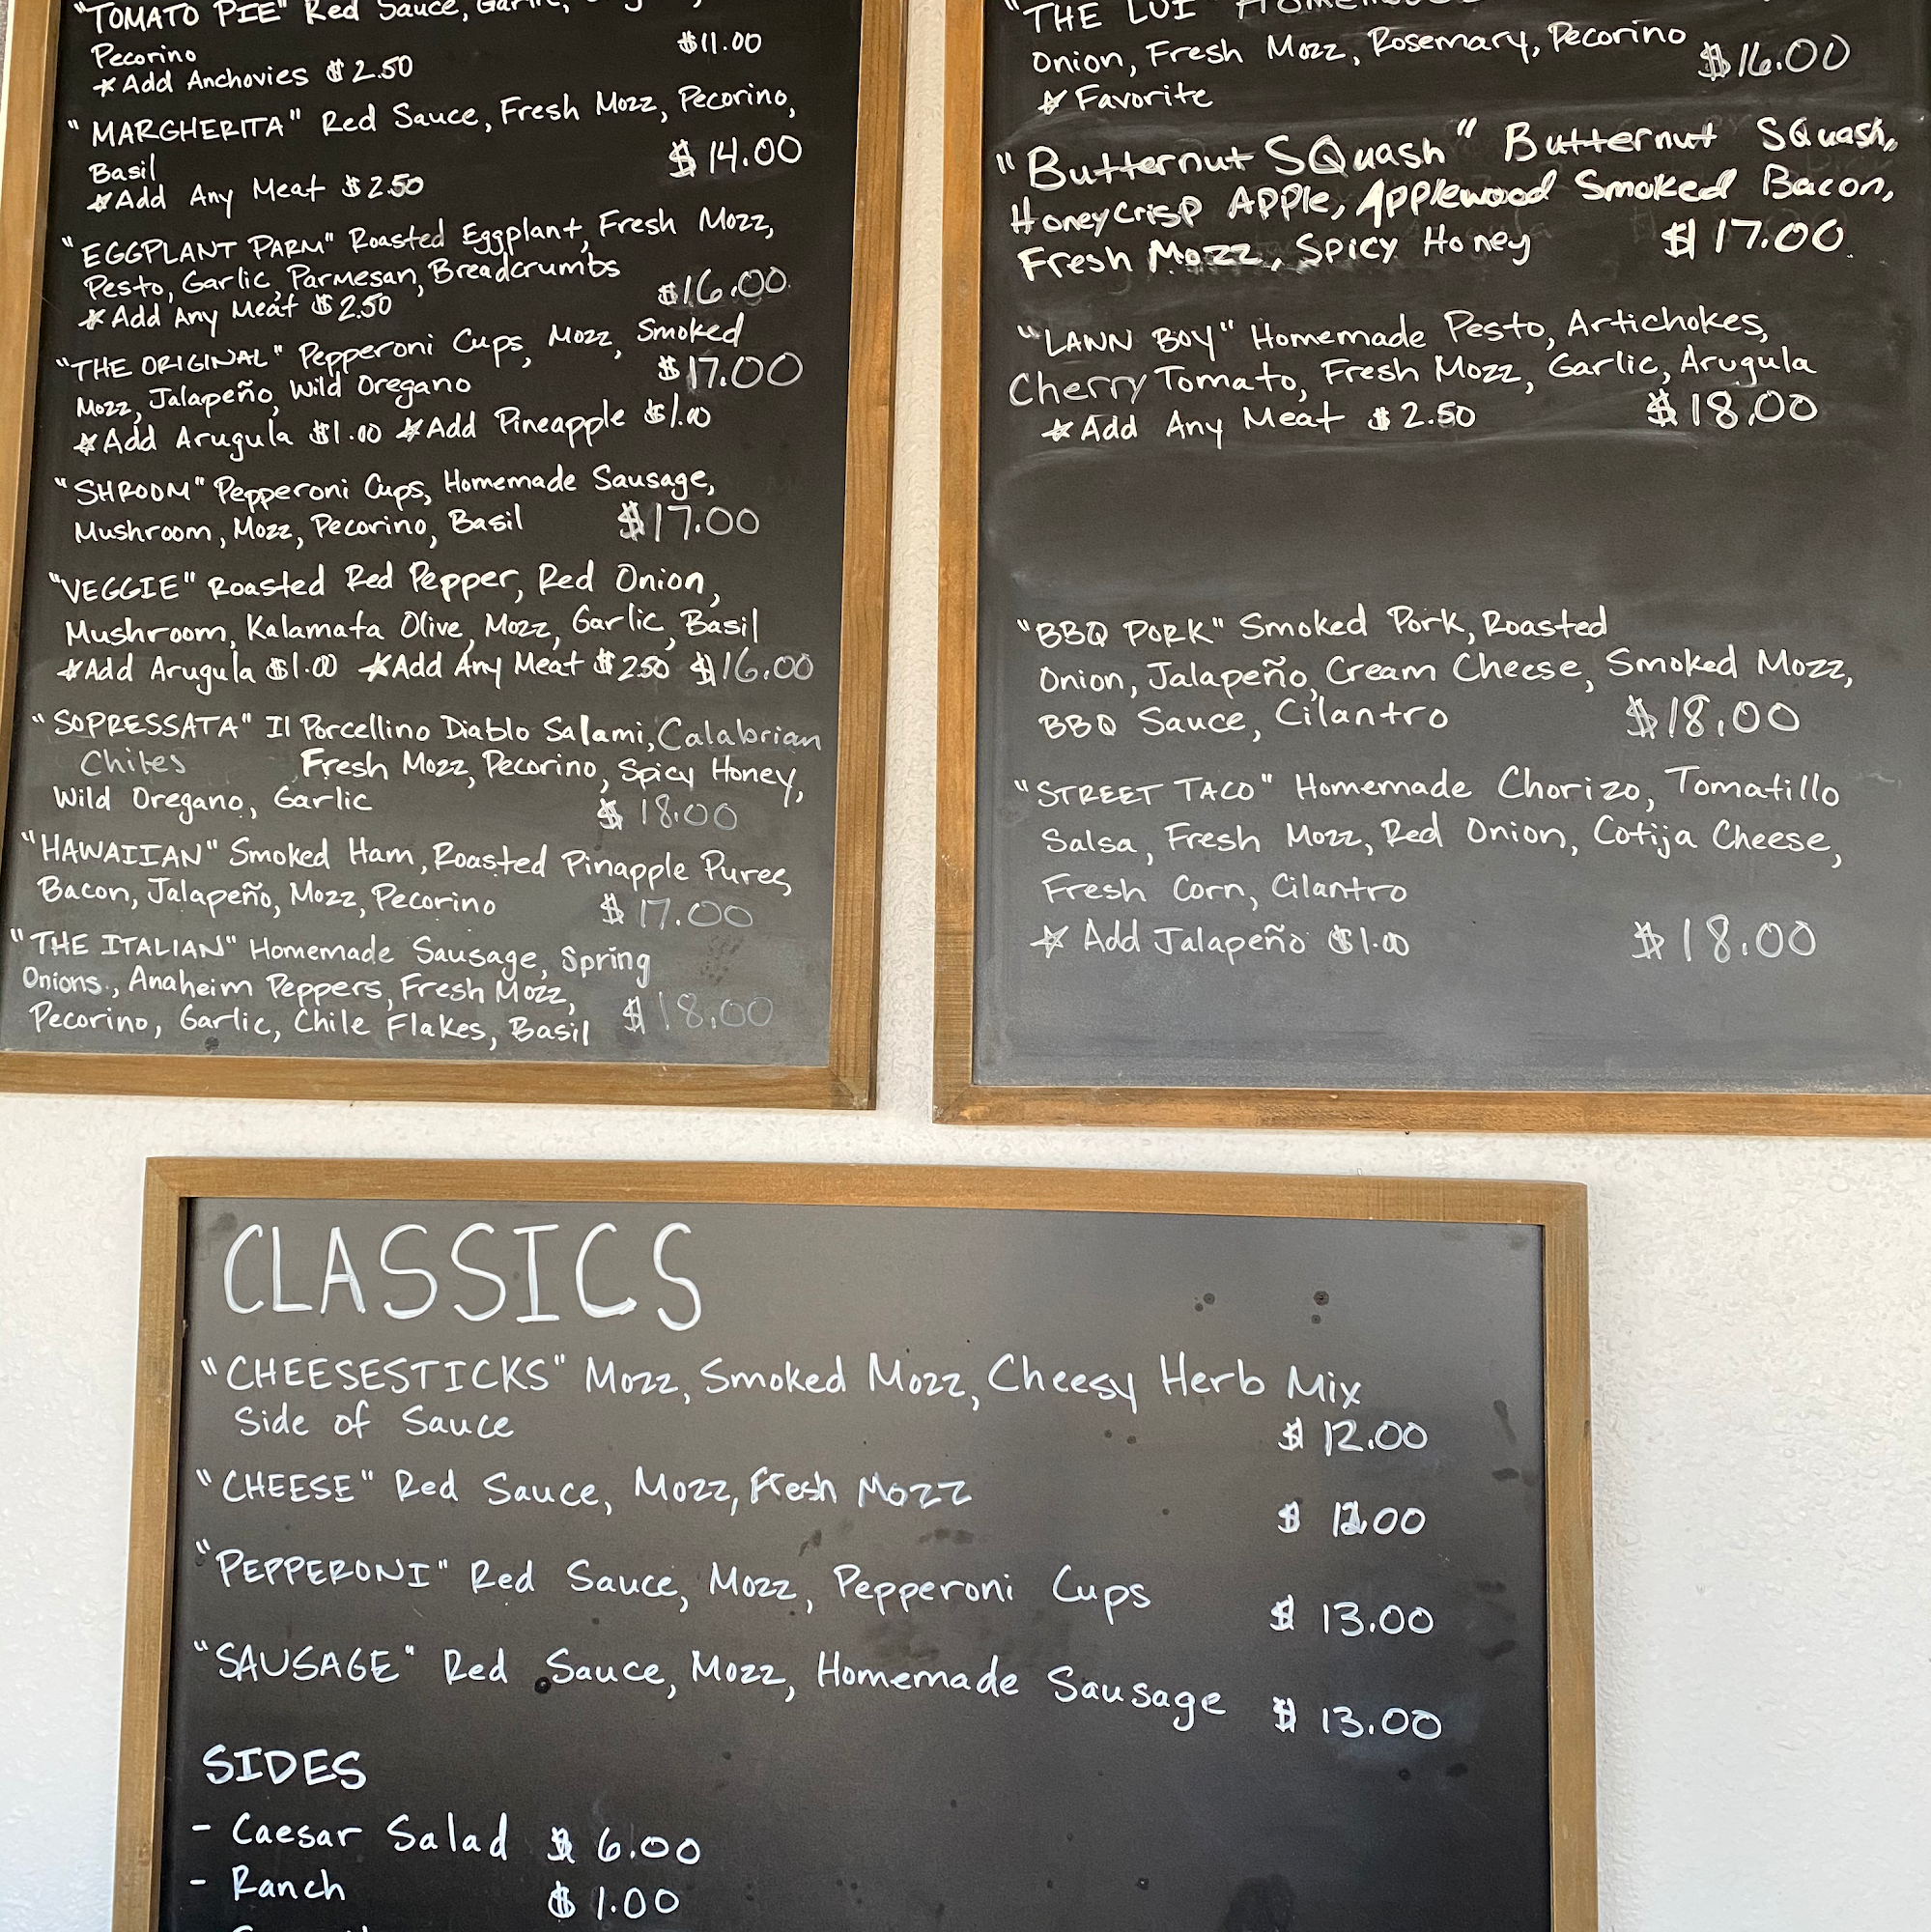 "TOMATO PIE" Red Sauce,
Pecorino $11.00
*Add Anchovies $2.50
"MARGHERITA" Red Sauce, Fresh Mozz, Pecorino,
Basil $14.00
*Add Any Meat $2.50
"EGGPLANT PARM" Roasted Eggplant, Fresh Mozz,
Pesto, Garlic, Parmesan, Breadcrumbs
*Add Any Meat $2.50 $16.00
"THE ORIGINAL" Pepperoni Cups, Mozz, Smoked
Mozz, Jalapeño, Wild Oregano $17.00
*Add Arugula $1.00 *Add Pineapple $1.00
"SHROOM" Pepperoni Cups, Homemade Sausage,
Mushroom, Mozz, Pecorino, Basil $17.00
"VEGGIE" Roasted Red Pepper, Red Onion,
Mushroom, Kalamata Olive, Mozz, Garlic, Basil
*Add Arugula $1.00 *Add Any Meat $2.50 $16.00
"SOPRESSATA" Il Porcellino Diablo Salami, Calabrian
Chiles Fresh Mozz, Pecorino, Spicy Honey,
Wild Oregano, Garlic $18.00
"HAWAIIAN" Smoked Ham, Roasted Pinapple Puree,
Bacon, Jalapeño, Mozz, Pecorino $17.00
"THE ITALIAN" Homemade Sausage, Spring
Onions, Anaheim Peppers, Fresh Mozz,
Pecorino, Garlic, Chile Flakes, Basil $18.00
"THE LUI"
Onion, Fresh Mozz, Rosemary, Pecorino $16.00
*Favorite
"Butternut SQuash" Butternut SQuash,
Honeycrisp Apple, Applewood Smoked Bacon,
Fresh Mozz, Spicy Honey $17.00
"LAWN BOY" Homemade Pesto, Artichokes,
Cherry Tomato, Fresh Mozz, Garlic, Arugula
*Add Any Meat $2.50 $18.00
"BBQ PORK" Smoked Pork, Roasted
Onion, Jalapeño, Cream Cheese, Smoked Mozz,
BBQ Sauce, Cilantro $18.00
"STREET TACO" Homemade Chorizo, Tomatillo
Salsa, Fresh Mozz, Red Onion, Cotija Cheese,
Fresh Corn, Cilantro
*Add Jalapeño $1.00 $18.00
CLASSICS
"CHEESESTICKS" Mozz, Smoked Mozz, Cheesy Herb Mix
Side of Sauce $12.00
"CHEESE" Red Sauce, Mozz, Fresh Mozz
"PEPPERONI" Red Sauce, Mozz, Pepperoni Cups $13.00
"SAUSAGE" Red Sauce, Mozz, Homemade Sausage $13.00
SIDES
- Caesar Salad $6.00
- Ranch $1.00